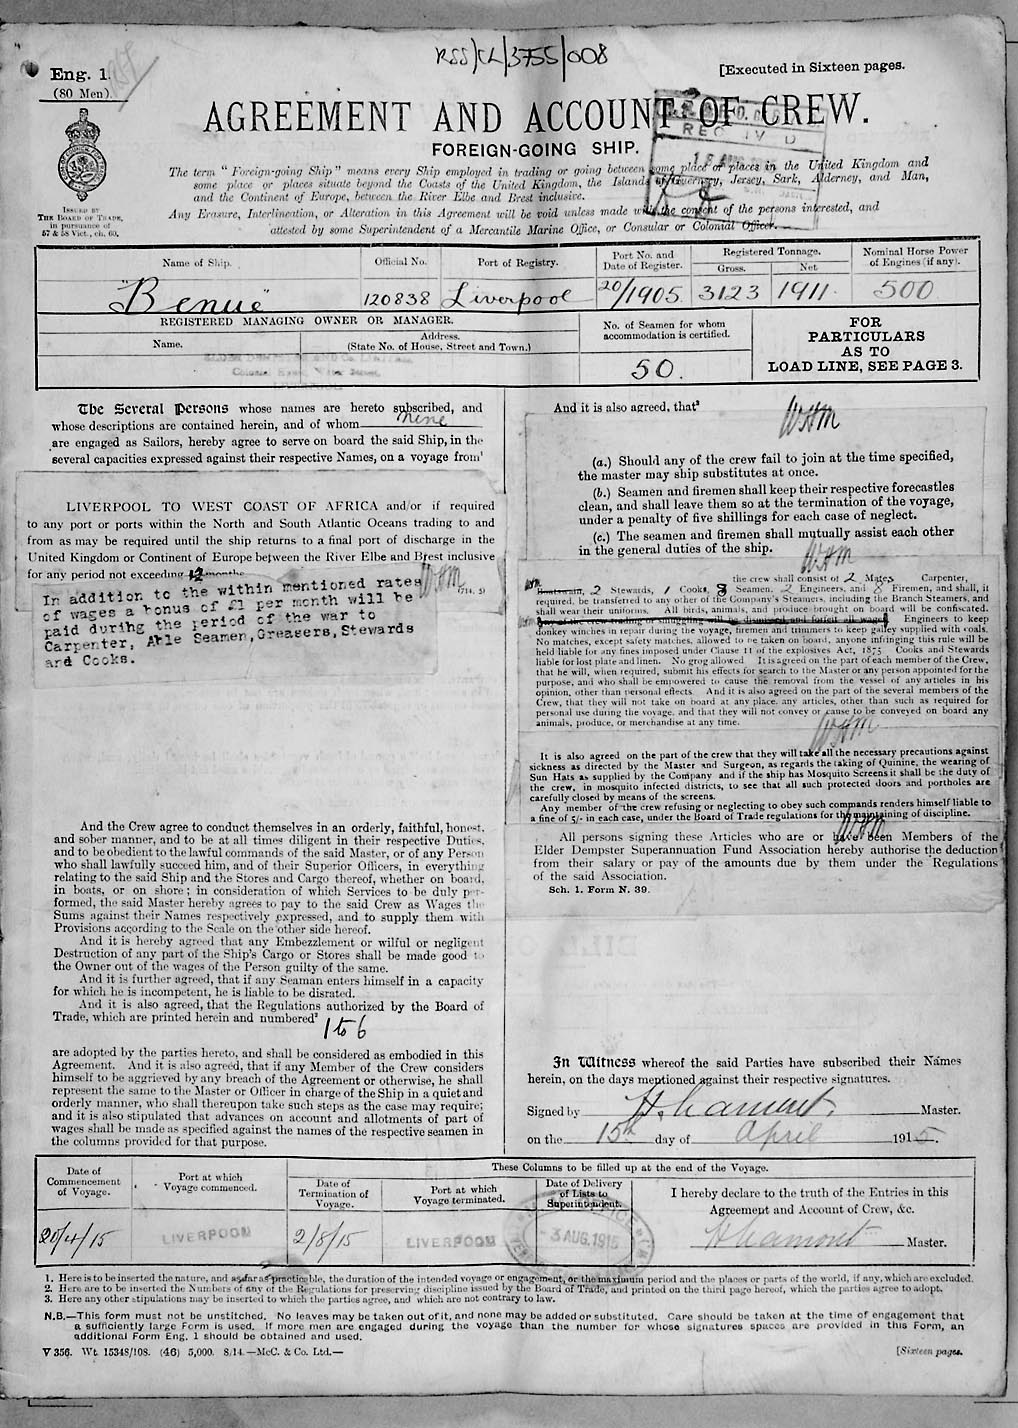 RSS/CL/3755/008
Eng. 1.
(80 Men)
[Executed in Sixteen pages.
AGREEMENT AND ACCOUNT OF CREW.
FOREIGN-GOING SHIP.
The term "Foreign-going Ship" means every Ship employed in trading or going between some place or places in the United Kingdom and
some place or places situate beyond the Coasts of the United Kingdom, the Islands of Guernsey, Jersey, Sark, Alderney, and Man,
and the Continent of Europe, between the River Elbe and Brest inclusive.
Any Erasure, Interlineation, or Alteration in this Agreement will be void unless made with the consent of the persons interested, and
attested by some Superintendent of a Mercantile Marine Office, or Consular or Colonial Officer.
ISSUED BY
THE BOARD OF TRADE,
in pursuance of
57 & 58 Vict., ch. 60.
Name of Ship.
Official No.
Port of Registry.
Port No. and
Date of Register.
Registered Tonnage.
Gross.
Net
Nominal Horse Power
of Engines (if any).
"Benue"
120838
Liverpool
20/1905
3123
1911
500
REGISTERED MANAGING OWNER OR MANAGER.
Name.
Address.
(State No. of House, Street and Town.)
No. of Seamen for whom
accommodation is certified.
50.
FOR
PARTICULARS
AS TO
LOAD LINE, SEE PAGE 3.
The Several Persons whose names are hereto subscribed, and
whose descriptions are contained herein, and of whom nine
are engaged as Sailors, hereby agree to serve on board the said Ship, in the
several capacities expressed against their respective Names, on a voyage from¹
LIVERPOOL TO WEST COAST OF AFRICA and/or if required
to any port or ports within the North and South Atlantic Oceans trading to and
from as may be required until the ship returns to a final port of discharge in the
United Kingdom or Continent of Europe between the River Elbe and Brest inclusive
for any period not exceeding 12 months
In addition to the within mentioned rates
of wages a bonus of £1 per month will be
paid during the period of the war to
Carpenter, Able Seamen, Greasers, Stewards
and Cooks.
And the Crew agree to conduct themselves in an orderly, faithful, honest,
and sober manner, and to be at all times diligent in their respective Duties,
and to be obedient to the lawful commands of the said Master, or of any Person
who shall lawfully succeed him, and of their Superior Officers, in everything
relating to the said Ship and the Stores and Cargo thereof, whether on board,
in boats, or on shore; in consideration of which Services to be duly per-
formed, the said Master hereby agrees to pay to the said Crew as Wages the
Sums against their Names respectively expressed, and to supply them with
Provisions according to the Scale on the other side hereof.
And it is hereby agreed that any Embezzlement or wilful or negligent
Destruction of any part of the Ship's Cargo or Stores shall be made good to
the Owner out of the wages of the Person guilty of the same.
And it is further agreed, that if any Seaman enters himself in a capacity
for which he is incompetent, he is liable to be disrated.
And it is also agreed, that the Regulations authorized by the Board of
Trade, which are printed herein and numbered² 1 to 6
are adopted by the parties hereto, and shall be considered as embodied in this
Agreement. And it is also agreed, that if any Member of the Crew considers
himself to be aggrieved by any breach of the Agreement or otherwise, he shall
represent the same to the Master or Officer in charge of the Ship in a quiet and
orderly manner, who shall thereupon take such steps as the case may require;
and it is also stipulated that advances on account and allotments of part of
wages shall be made as specified against the names of the respective seamen in
the columns provided for that purpose.
And it is also agreed, that³
WHM
(a.) Should any of the crew fail to join at the time specified,
the master may ship substitutes at once.
(b.) Seamen and firemen shall keep their respective forecastles
clean, and shall leave them so at the termination of the voyage,
under a penalty of five shillings for each case of neglect.
(c.) The seamen and firemen shall mutually assist each other
in the general duties of the ship.
WHM
the crew shall consist of 2 Mates Carpenter,
Boatswain, 2 Stewards, 1 Cooks, 8 Seamen, 2 Engineers, and 8 Firemen, and shall, if
required, be transferred to any other of the Company's Steamers, including the Branch Steamers, and
shall wear their uniforms. All birds, animals, and produce brought on board will be confiscated.
Any of the crew trading or smuggling will be dismissed and forfeit all wages. Engineers to keep
donkey winches in repair during the voyage, firemen and trimmers to keep galley supplied with coals.
No matches, except safety matches, allowed to be taken on board, anyone infringing this rule will be
held liable for any fines imposed under Clause 11 of the explosives Act, 1875 Cooks and Stewards
liable for lost plate and linen. No grog allowed It is agreed on the part of each member of the Crew,
that he will, when required, submit his effects for search to the Master or any person appointed for the
purpose, and who shall be empowered to cause the removal from the vessel of any articles in his
opinion, other than personal effects And it is also agreed on the part of the several members of the
Crew, that they will not take on board at any place, any articles, other than such as required for
personal use during the voyage, and that they will not convey or cause to be conveyed on board any
animals, produce, or merchandise at any time.
WHM
It is also agreed on the part of the crew that they will take all the necessary precautions against
sickness as directed by the Master and Surgeon, as regards the taking of Quinine, the wearing of
Sun Hats as supplied by the Company and if the ship has Mosquito Screens it shall be the duty of
the crew, in mosquito infected districts, to see that all such protected doors and portholes are
carefully closed by means of the screens.
Any member of the crew refusing or neglecting to obey such commands renders himself liable to
a fine of 5/- in each case, under the Board of Trade regulations for the maintaining of discipline.
WHM
All persons signing these Articles who are or have been Members of the
Elder Dempster Superannuation Fund Association hereby authorise the deduction
from their salary or pay of the amounts due by them under the Regulations
of the said Association.
Sch. 1. Form N. 39.
In Witness whereof the said Parties have subscribed their Names
herein, on the days mentioned against their respective signatures.
Signed by Master.
on the 15th day of April 1915.
Date of
Commencement
of Voyage.
Port at which
Voyage commenced.
These Columns to be filled up at the end of the Voyage.
Date of
Termination of
Voyage.
Port at which
Voyage terminated.
Date of Delivery
of Lists to
Superintendent.
I hereby declare to the truth of the Entries in this
Agreement and Account of Crew, &c.
Master.
20/4/15
LIVERPOOL
2/8/15
LIVERPOOL
3 AUG.1915
1. Here is to be inserted the nature, and as far as practicable, the duration of the intended voyage or engagement, or the maximum period and the places or parts of the world, if any, which are excluded.
2. Here are to be inserted the Numbers of any of the Regulations for preserving discipline issued by the Board of Trade, and printed on the third page hereof, which the parties agree to adopt.
3. Here any other stipulations may be inserted to which the parties agree, and which are not contrary to law.
N.B.—This form must not be unstitched. No leaves may be taken out of it, and none may be added or substituted. Care should be taken at the time of engagement that
a sufficiently large Form is used. If more men are engaged during the voyage than the number for whose signatures spaces are provided in this Form, an
additional Form Eng. 1 should be obtained and used.
V 356. Wt. 15348/108. (46) 5,000. 8/14.—McC. & Co. Ltd.—
[Sixteen pages.